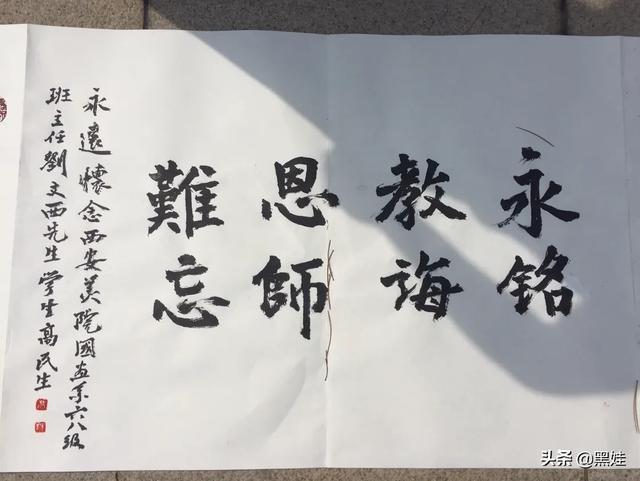 永铭
教诲
恩師
難忘
永遠懷念西安美院國画系六八级
班主任劉文西先生学生高民生
头条 @黑娃